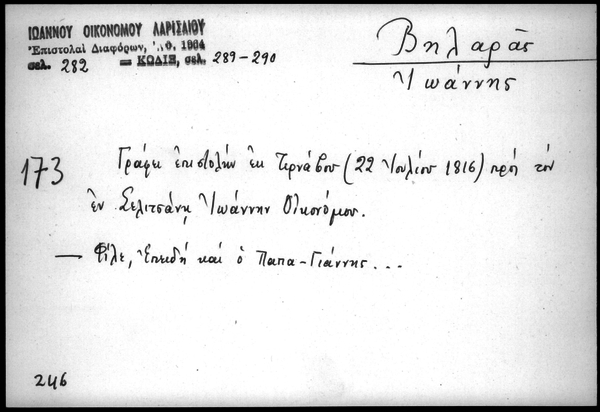 ΙΩΑΝΝΟΥ ΟΙΚΟΝΟΜΟΥ ΛΑΡΙΣΑΙΟΥ
Ἐπιστολαὶ Διαφόρων, 1964
σελ. 282 — ΚΩΔΙΞ, σελ. 289-290
Βηλαρᾶς
Ἰωάννης
173
Γράφει ἐπιστολὴν ἐκ Τερνάβου (22 Ἰουλίου 1816) πρὸς τὸν
ἐν Σελιτσάνῃ Ἰωάννην Οἰκονόμου.
— Φίλε, Ἐπειδὴ καὶ ὁ Παπα-Γιάννης...
246